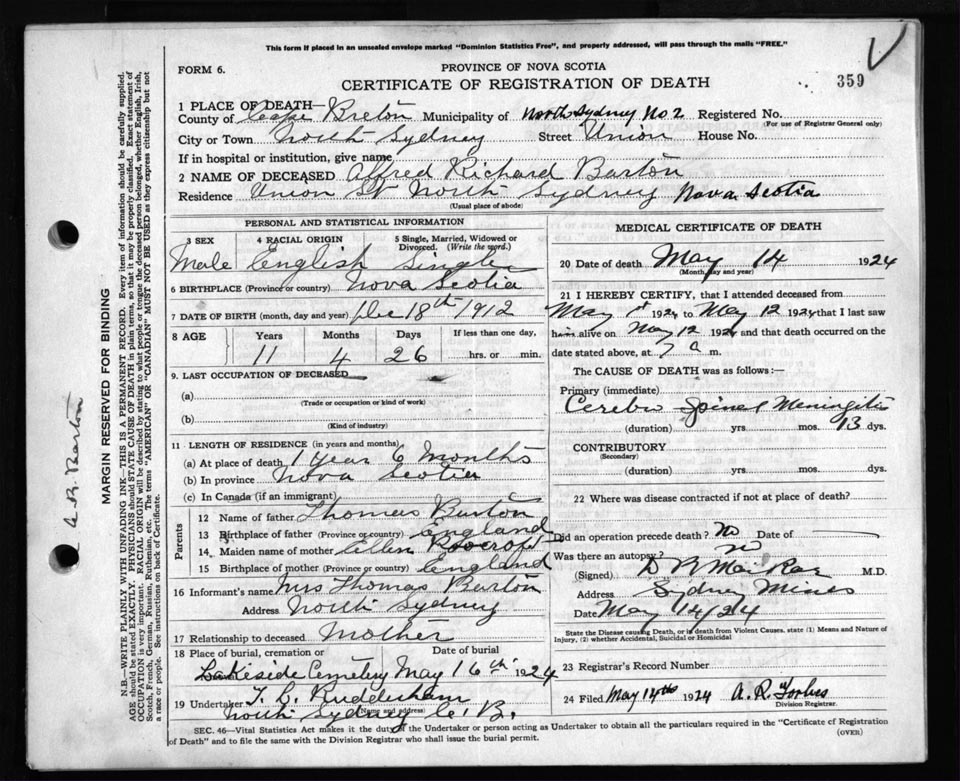 This form if placed in an unsealed envelope marked "Dominion Statistics Free", and properly addressed, will pass through the mails "FREE."
FORM 6.
PROVINCE OF NOVA SCOTIA
CERTIFICATE OF REGISTRATION OF DEATH
359
1 PLACE OF DEATH—
County of Cape Breton Municipality of North Sydney No 2 Registered No.
(For use of Registrar General only)
City or Town North Sydney Street Union House No.
If in hospital or institution, give name
2 NAME OF DECEASED Alfred Richard Barton
Residence Union St North Sydney Nova Scotia
(Usual place of abode)
PERSONAL AND STATISTICAL INFORMATION
3 SEX 4 RACIAL ORIGIN 5 Single, Married, Widowed or Divorced. (Write the word.)
Male English Single
6 BIRTHPLACE (Province or country) Nova Scotia
7 DATE OF BIRTH (month, day and year) Dec 18th 1912
8 AGE Years Months Days If less than one day,
11 4 26 hrs. or min.
9. LAST OCCUPATION OF DECEASED
(a)
(Trade or occupation or kind of work)
(b)
(Kind of industry)
11 LENGTH OF RESIDENCE (in years and months)
(a) At place of death 1 Year 6 Months
(b) In province Nova Scotia
(c) In Canada (if an immigrant)
Parents
12 Name of father Thomas Barton
13 Birthplace of father (Province or country) England
14 Maiden name of mother Ellen
15 Birthplace of mother (Province or country) England
16 Informant's name Mrs Thomas Barton
Address North Sydney
17 Relationship to deceased Mother
18 Place of burial, cremation or Date of burial
Lakeside Cemetery May 16th 1924
19 Undertaker T. C. Ruddersham
(Name and address)
North Sydney C. B.
MEDICAL CERTIFICATE OF DEATH
20 Date of death May 14 1924
(Month, day and year)
21 I HEREBY CERTIFY, that I attended deceased from
May 1st 1924 to May 12 1924 that I last saw
him alive on May 12 1924 and that death occurred on
date stated above, at 7 a m.
The CAUSE OF DEATH was as follows:—
Primary (immediate)
Cerebro Spinal Meningitis
(duration) yrs. mos. 13 dys.
CONTRIBUTORY
(Secondary)
(duration) yrs. mos. dys.
22 Where was disease contracted if not at place of death?
Did an operation precede death? No Date of
Was there an autopsy? No
(Signed) M.D.
Address Sydney Mines
Date May 14/24
State the Disease causing Death, or in death from Violent Causes, state (1) Means and Nature of Injury, (2) whether Accidental, Suicidal or Homicidal
23 Registrar's Record Number
24 Filed May 14th 1924 A. R. Forbes
Division Registrar.
SEC. 46—Vital Statistics Act makes it the duty of the Undertaker or person acting as Undertaker to obtain all the particulars required in the "Certificate of Registration
of Death" and to file the same with the Division Registrar who shall issue the burial permit.
(OVER)
MARGIN RESERVED FOR BINDING
N.B.—WRITE PLAINLY WITH UNFADING INK—THIS IS A PERMANENT RECORD. Every item of information should be carefully supplied.
AGE should be stated EXACTLY. PHYSICIANS should STATE CAUSE OF DEATH in plain terms, so that it may be properly classified. Exact statement of
OCCUPATION is very important. RACIAL ORIGIN will be described by stating to what people or tongue the deceased person belonged, whether English, Irish,
Scotch, French, German, Russian, Ruthenian, etc. The terms "AMERICAN" OR "CANADIAN" MUST NOT BE USED as they express citizenship but not
a race or people. See instructions on back of Certificate.